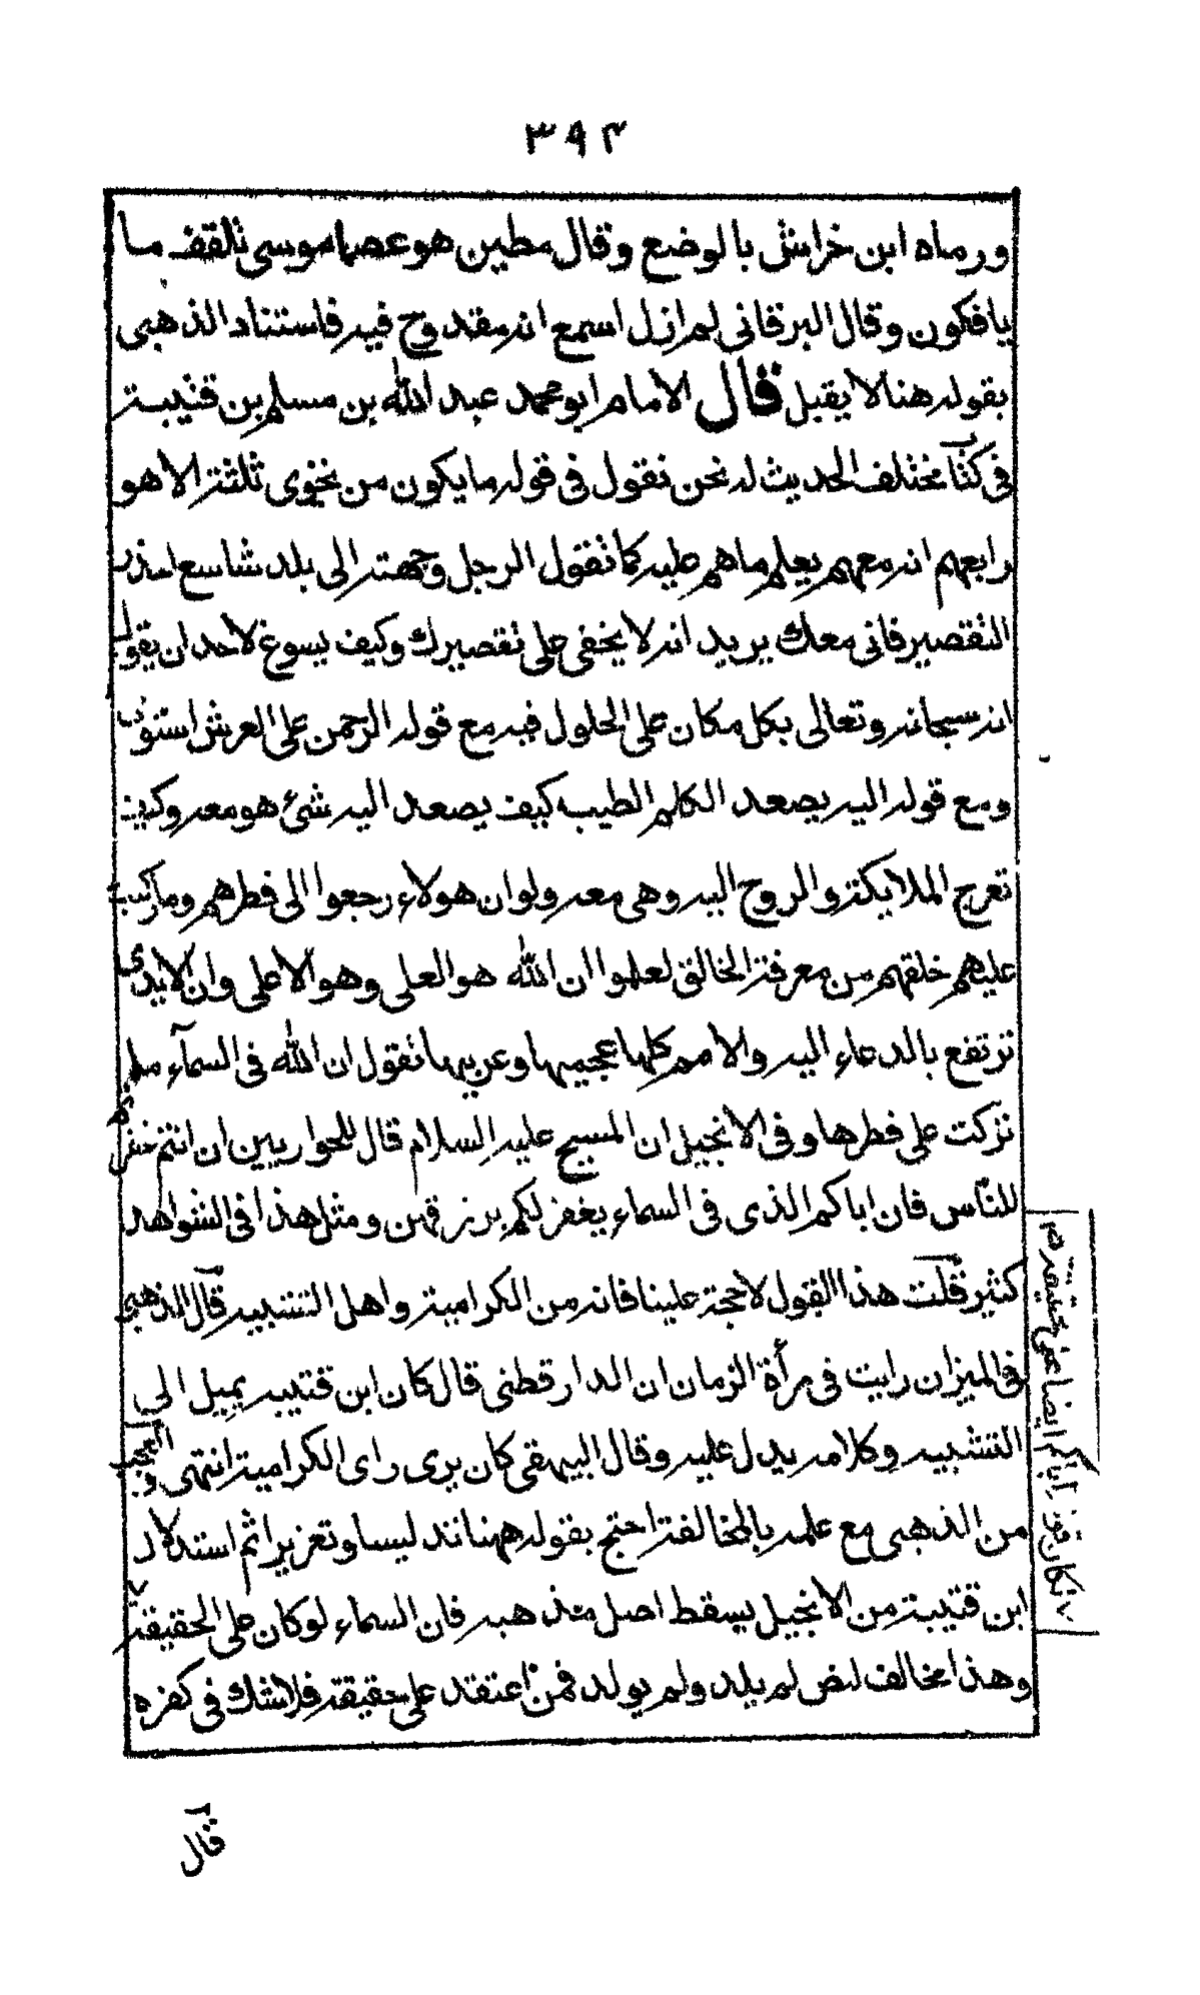 ٣٩٤
ورماه ابن خراش بالوضع وقال مطين هو عصا موسى تلقف ما
يافكون وقال البرقانى لم ازل اسمع انه مقدوح فيه فاستناد الذهبى
بقوله هنا لا يقبل قال الامام ابو محمد عبد الله بن مسلم بن قتيبة
فى كتاب مختلف الحديث له نحن نقول فى قوله ما يكون من نجوى ثلثة الا هو
رابعهم انه معهم يعلم ما هم عليه كما تقول الرجل وجهته الى بلد شاسع احذر
التقصير فانى معك يريد انه لا يخفى على تقصيرك وكيف يسوغ لاحد ان يقول
انه سبحانه وتعالى بكل مكان على الحلول فيه مع قوله الرحمن على العرش استوى
ومع قوله اليه يصعد الكلم الطيب كيف يصعد اليه شئ هو معه وكيف
تعرج الملايكة والروح اليه وهى معه ولو ان هولاء رجعوا الى فطرهم وما ركبت
عليهم خلقهم من معرفة الخالق لعلموا ان الله هو العلى وهو الاعلى وان الايدى
ترتفع بالدعاء اليه والامم كلها عجميها وعربيها تقول ان الله فى السمآء ما
تركت على فطرها وفى الانجيل ان المسيح عليه السلام قال للحواريين ان انتم غفرتم
للناس فان اباكم الذى فى السماء يغفر لكم برزقهن ومثل هذا فى الشواهد
كثير قلت هذا القول لا حجة علينا فانه من الكرامية واهل التشبيه قال الذهبى
فى الميزان رايت فى مرأة الزمان ان الدارقطنى قال كان ابن قتيبه يميل الى
التشبيه وكلامه يدل عليه وقال البيهقى كان يرى راى الكرامية انتهى والعجب
من الذهبى مع علمه بالمخالفة احتج بقوله ههنا تدليسا وتعزير اثم استدلال
ابن قتيبة من الانجيل يسقط اصل مذهبه فان السماء لو كان على الحقيقة
وهذا مخالف لنص لم يلد ولم يولد فمن اعتقد على حقيقته فلا شك فى كفره
قال